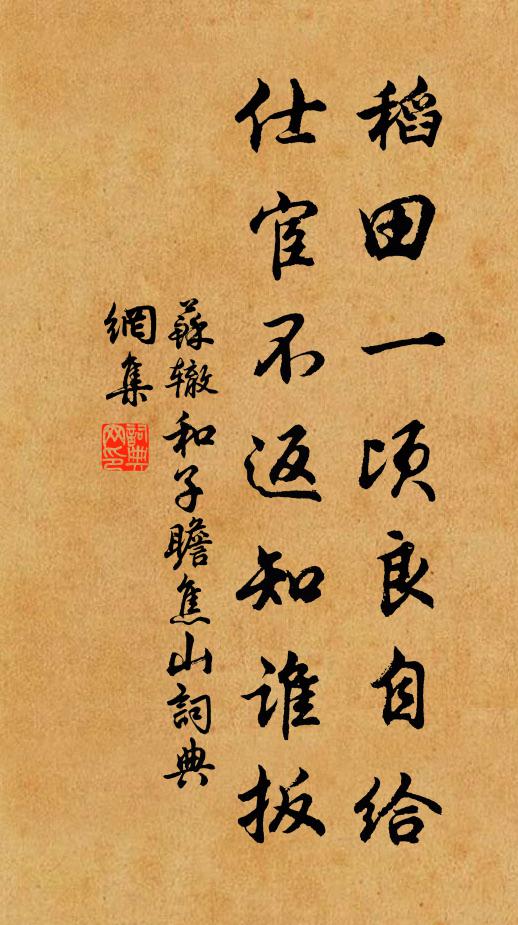 稻田一頃良自給
仕宦不返知誰扳
蘇轍和子瞻焦山詞典
網集
詞典
网印